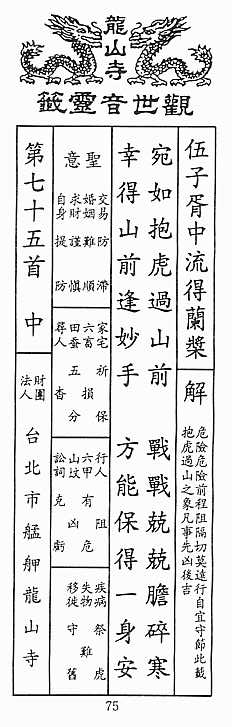 龍山寺
觀世音靈籤
伍子胥中流得蘭槳
解
危險危險前程阻隔切莫遠行自宜守節此籤
抱虎過山之象凡事先凶後吉
宛如抱虎過山前 戰戰兢兢膽碎寒
幸得山前逢妙手 方能保得一身安
聖意
交易防滯
婚姻難順
求財謹慎
自身提防
家宅祈保
六畜損
田蚕五分
尋人杳
行人阻
六甲有危
山坟凶
訟詞克虧
疾病祭虎
失物難
移徙守舊
第七十五首 中
財團法人
台北市艋舺龍山寺
75